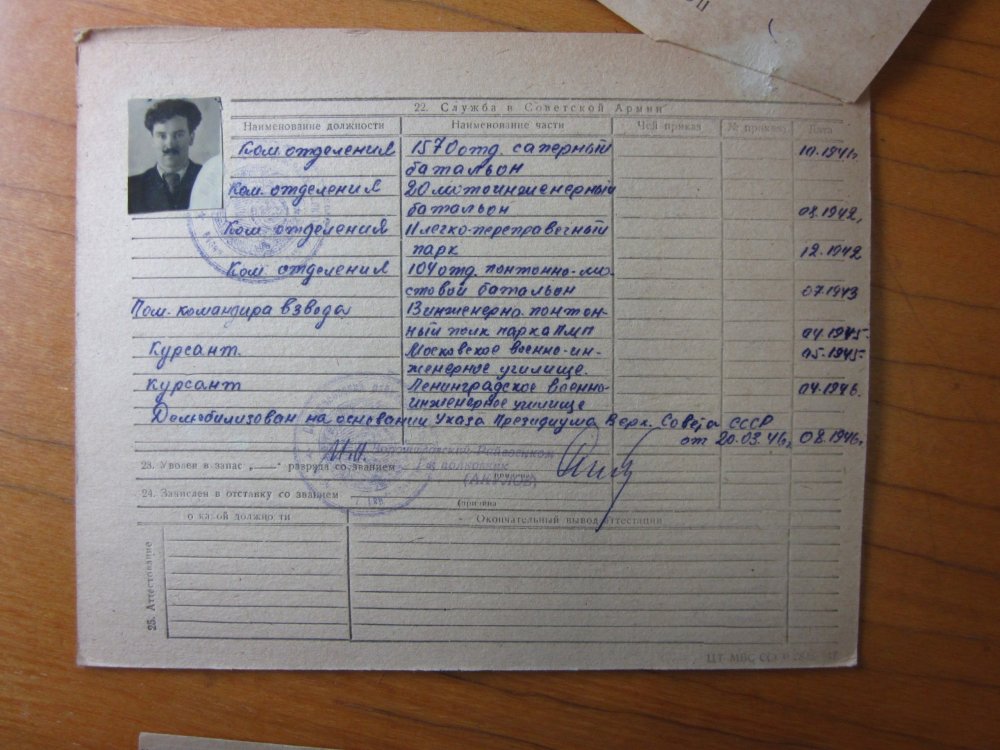 22. Служба в Советской Армии
Наименование должности Наименование части Чей приказ № приказа Дата
Ком. отделения 1570 отд. саперный 10.1941г.
батальон
Ком. отделения 20 мотоинженерный
батальон 08.1942г.
Ком. отделения 11 легко-переправечный
парк 12.1942
Ком. отделения 104 отд. понтонно-мо-
стовой батальон 07.1943
Пом. командира взвода 13 инженерно-понтон-
ный полк парка ПМП 04.1945.
Курсант. Московское военно-ин- 05.1945.
женерное училище.
Курсант Ленинградское военно- 04.1946.
инженерное училище
Демобилизован на основании Указа Президиума Верх. Совета СССР
от 20.03.46г. 08.1946г.
23. Уволен в запас „ — “ разряда со званием
полковник
(АКУЛОВ)
24. Зачислен в отставку со званием
(прописью)
25. Аттестование
о какой должности Окончательный вывод аттестации